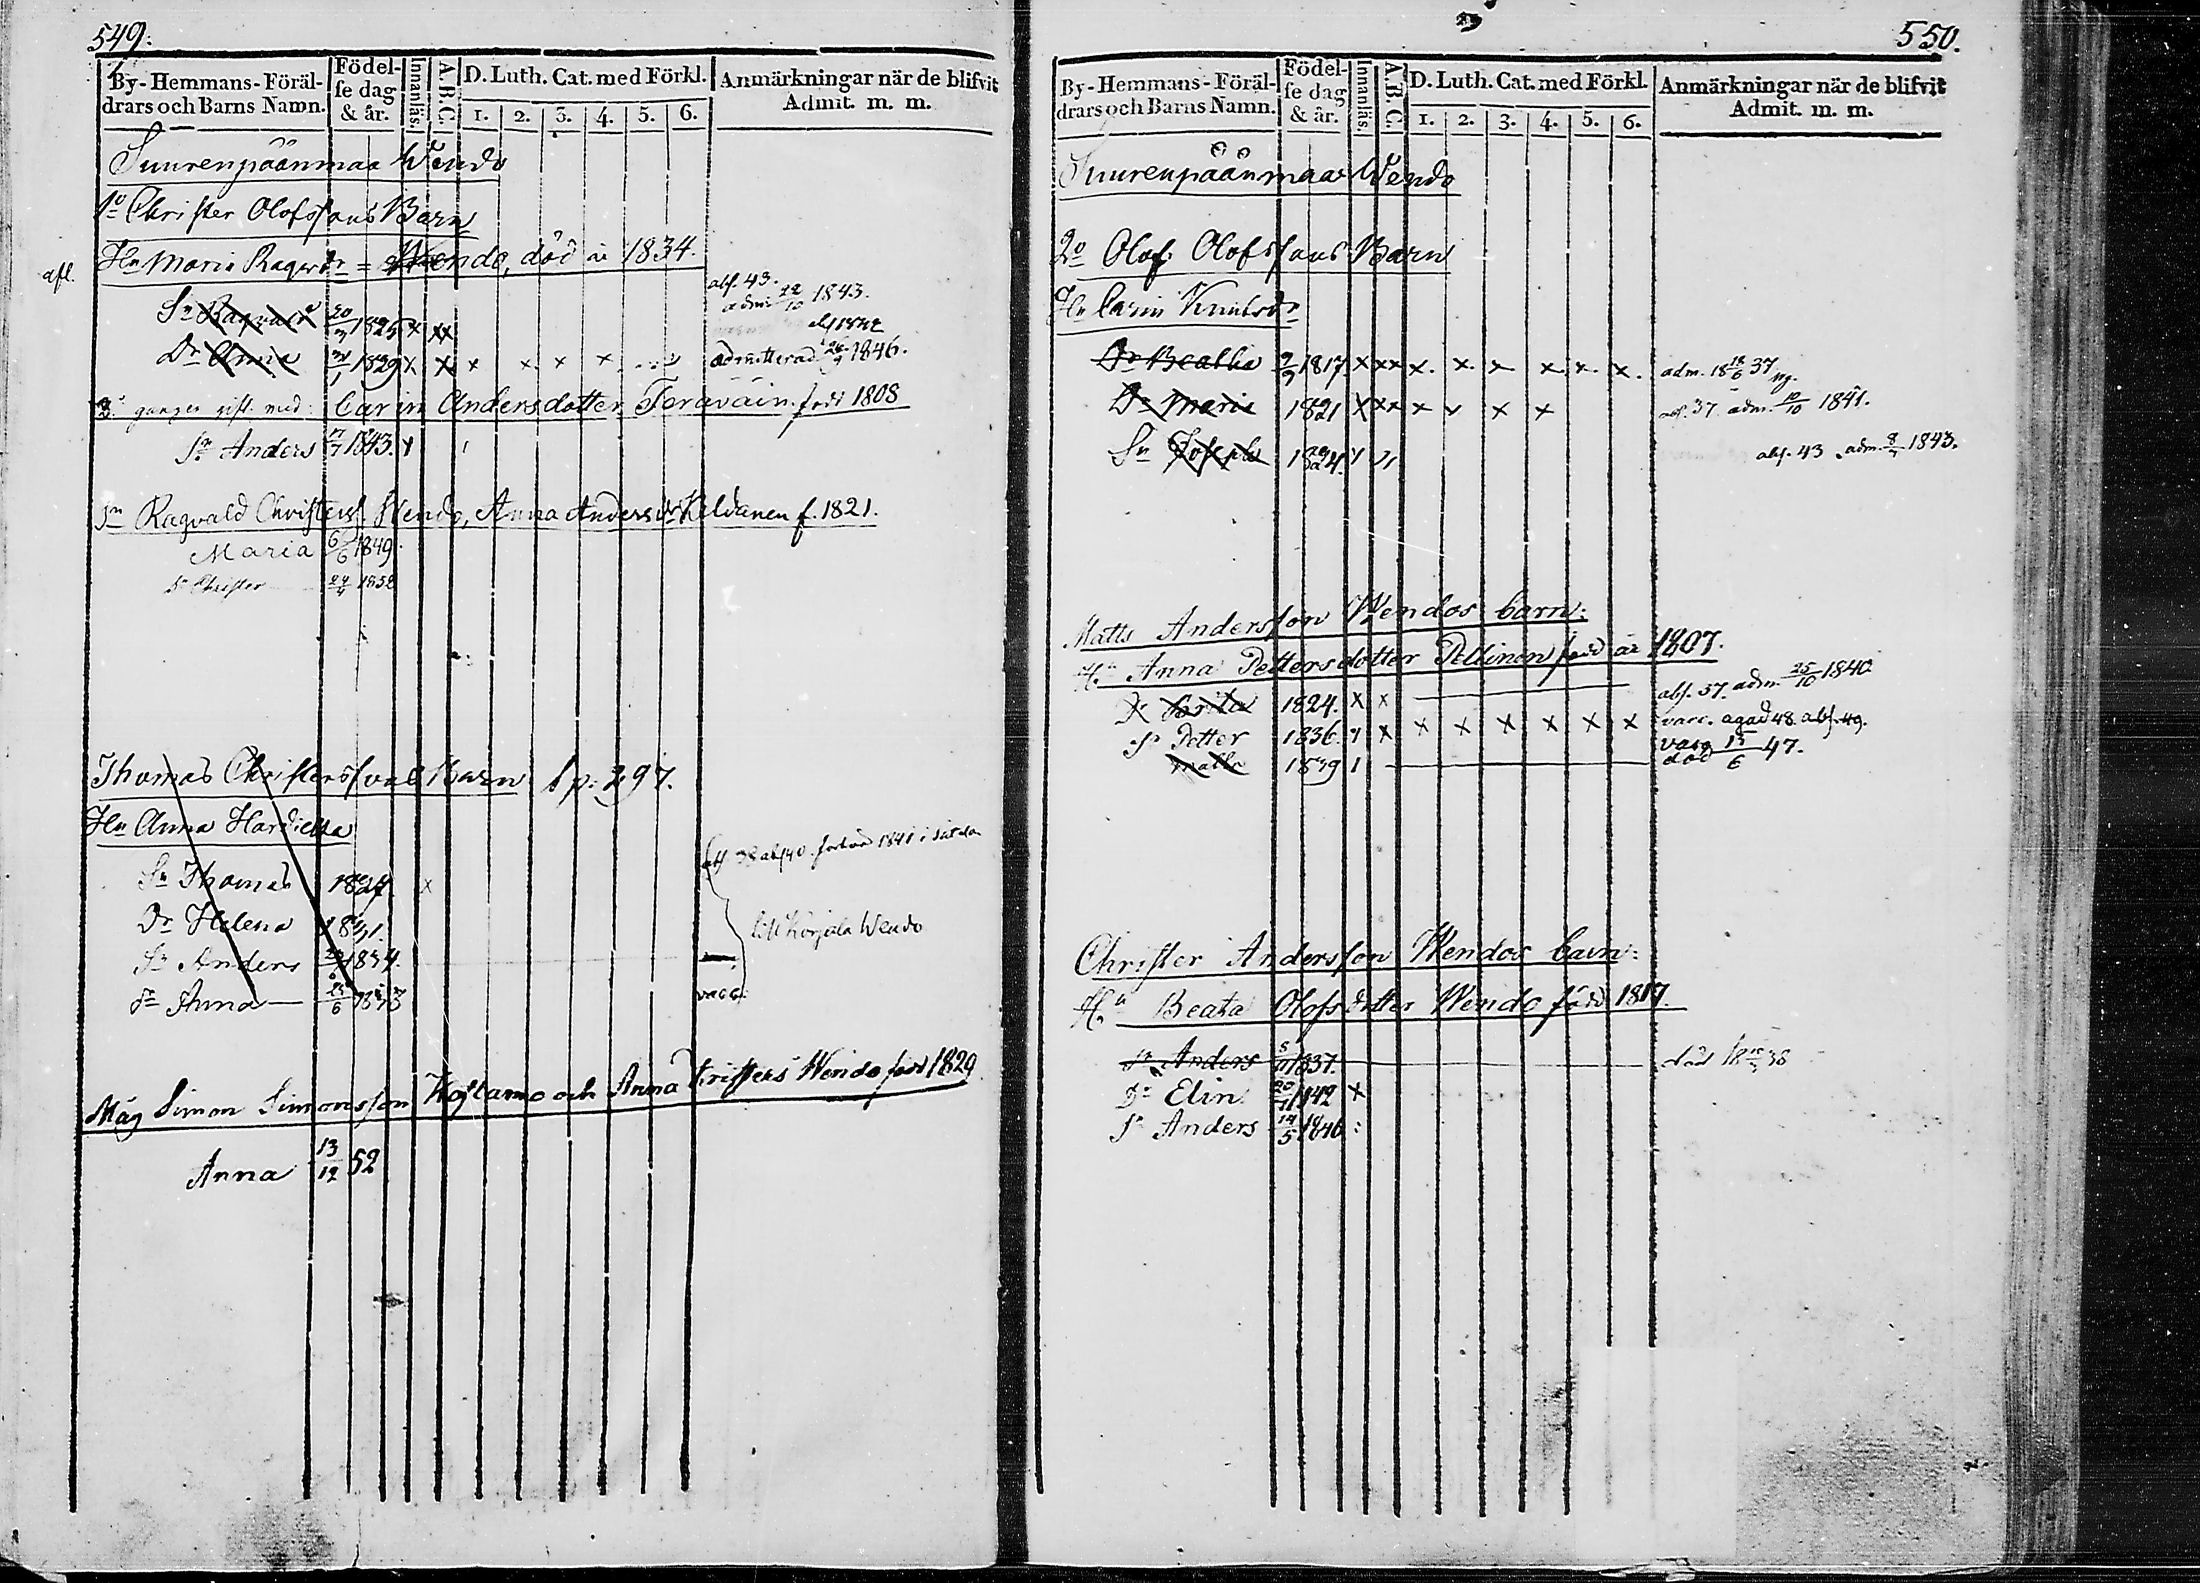 549:
By-Hemmans-Föräl-
drars och Barns Namn.
Födel-
se dag
& år.
Innanläs.
A.B.C.
D. Luth. Cat. med Förkl.
1. 2. 3. 4. 5. 6.
Anmärkningar när de blifvit
Admit. m. m.
Suurenpäänmaa Wendo
1o Christer Olofssons Barn
Hu Maria Ragvdr = Wendo, död år 1834.
afl.
Sn Ragvald 20/3 1825 x xx abs. 43. adm. 22/10 1843.
Dr Anna 1829 x x x x x x admitterad 1846.
gånger gift med: Carin Andersdotter Teräväin. född 1808
Sn Anders 1843.
Sn Ragvald Christerss. Wendo, Anna Andersdr Kildanen f. 1821.
Maria 6/6 1849.
Sn Christer 1852
Thomas Christerssons Barn p. 297.
Hu Anna Hardikka
abs. 38 abs 40. 1841
Sn Thomas 1827 x
Dr Helena 1831.
till Korjula Wendo
Sn Anders 1834.
Anna 1843 vacc.
Måg Simon Simonsson Koslamo och Anna Kristers Wendo född 1829
Anna 13/12 52
550.
By-Hemmans-Föräl-
drars och Barns Namn.
Födel-
se dag
& år.
Innanläs.
A. B. C.
D. Luth. Cat. med Förkl.
1. 2. 3. 4. 5. 6.
Anmärkningar när de blifvit
Admit. m. m.
Suurenpäänmaa Wendo
2o Olof Olofssons Barn
Hu Carin Knutsdr
Dr Beatha 1817. x xx x. x. x x. x. x. adm. 18 18/6 37
Dr Maria 1821 x xx x x x x abs. 37. adm. 10/10 1841.
Sn Joseph 1824. abs. 43. adm. 1843.
Matts Andersson Wendos barn:
Hu Anna Pettersdotter Pellinen född år 1807.
Dr 1824. x x abs. 37. adm. 25/10 1840.
Sn Petter 1836. x x x x x x x vacc. agad 48. abs. 49.
Matts 1839 vacc död 15/6 47.
Christer Andersson Wendos barn:
Hu Beata Olofsdotter Wendo född 1817.
Sn Anders 1837. död 18 38
Dr Elin 1842 x
Sn Anders 14/5 1846 :